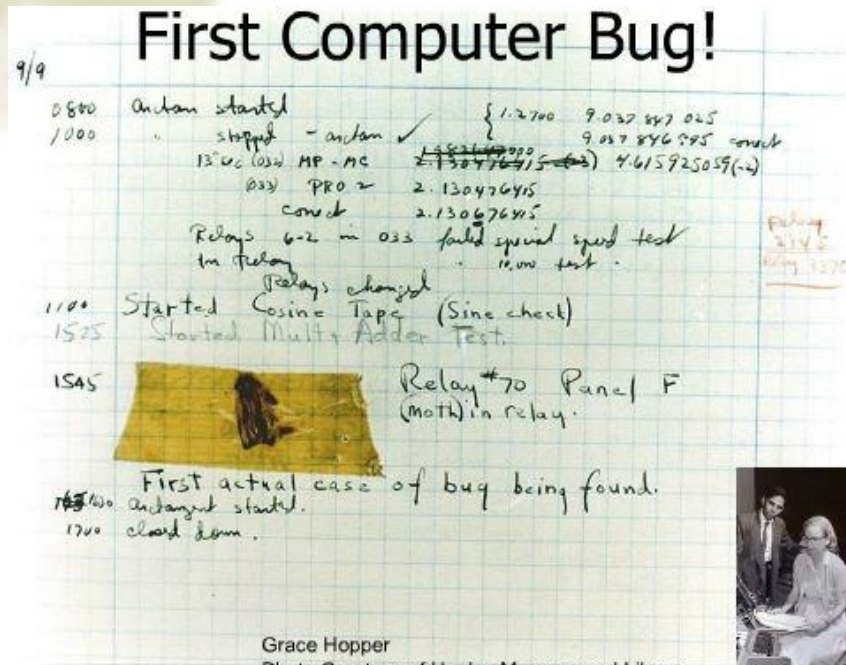 First Computer Bug!
9/9
0800 arctan started
1000 " stopped - arctan ✓
{ 1.2700 9.037 847 025
9.037 846 995 correct
13"uc (032) MP - MC 2.130476415 4.615925059(-2)
(033) PRO 2 2.130476415
correct 2.130676415
Relays 6-2 in 033 failed special speed test
In relay " 10,000 test .
Relays changed
1100 Started Cosine Tape (Sine check)
1525 Started Mult + Adder Test.
1545 Relay #70 Panel F
(moth) in relay.
First actual case of bug being found.
1630 arctangent started.
1700 closed down.
Relay
Grace Hopper